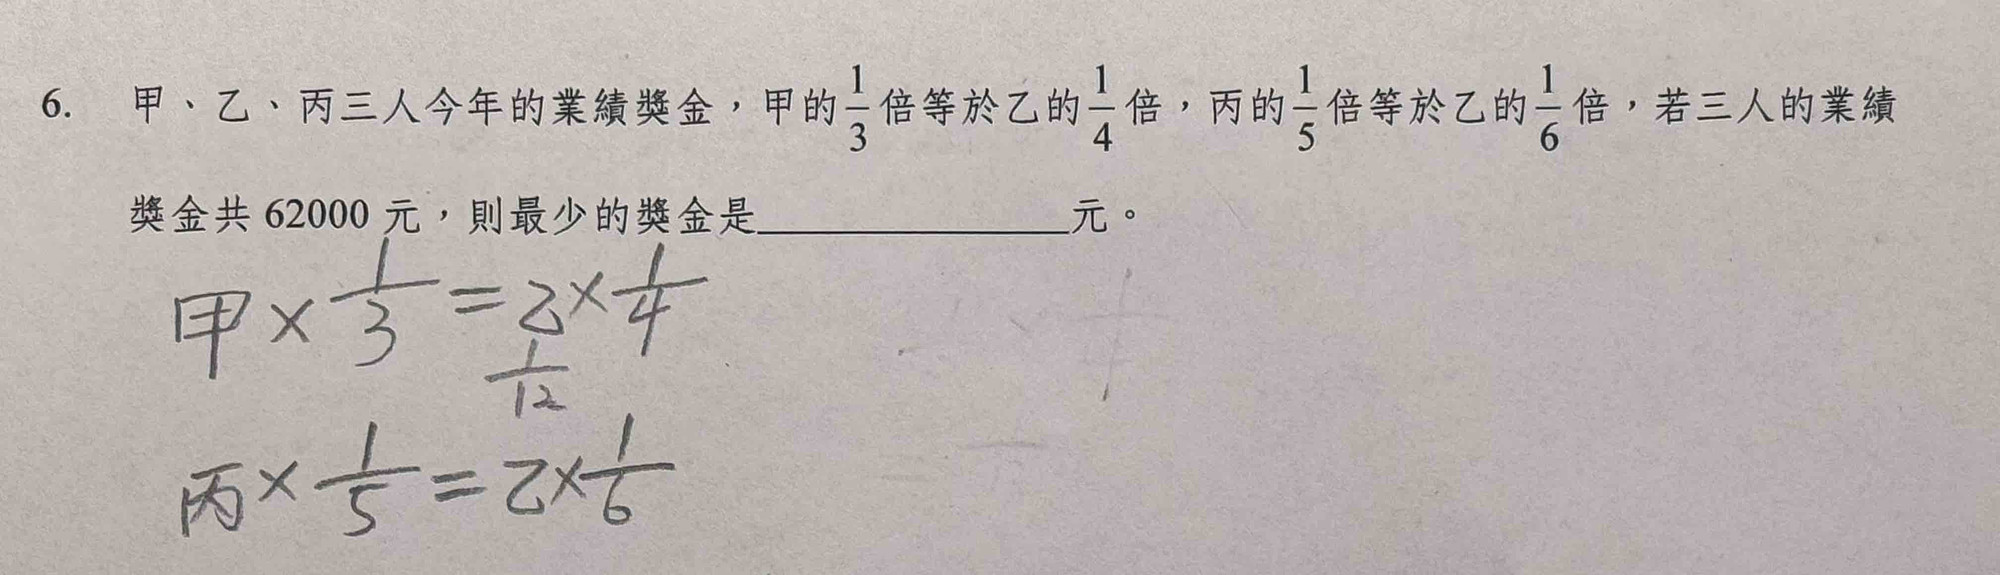 6. 甲、乙、丙三人今年的業績獎金，甲的1/3倍等於乙的1/4倍，丙的1/5倍等於乙的1/6倍，若三人的業績
獎金共 62000 元，則最少的獎金是____________元。
甲×1/3=乙×1/4
1/12
丙×1/5=乙×1/6